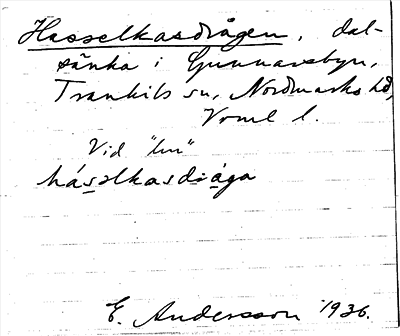 Hasselkasdrågen, dal-
sänka i Gunnarsbyn,
Trankils sn, Nordmarks hd,
Vrml l.
Vid "lm"
hásəlkasdrága
E. Andersson 1936.